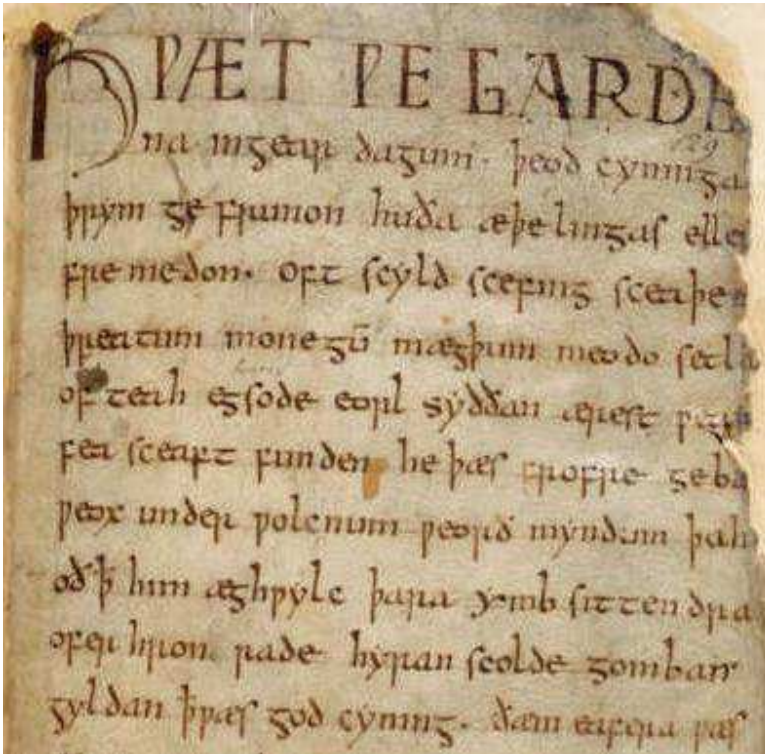 HǷÆT ǷE GARDE
129
na ingear dagum. þeod cyninga
þrym ge frunon huða æþelingas elle
fremedon. oft scyld scefing sceaþe
þreatum monegū mægþum meodo setla
of teah egsode eorl syððan ærest
fea sceaft funden he þæs frofre geba
ƿeox under ƿolcnum ƿeorð myndum þah
oð ꝥ him æghƿylc þara ymb sittendra
ofer hron rade hyran scolde gomban
gyldan ꝥ ƿæs god cyning. ðæm eafera ƿæs